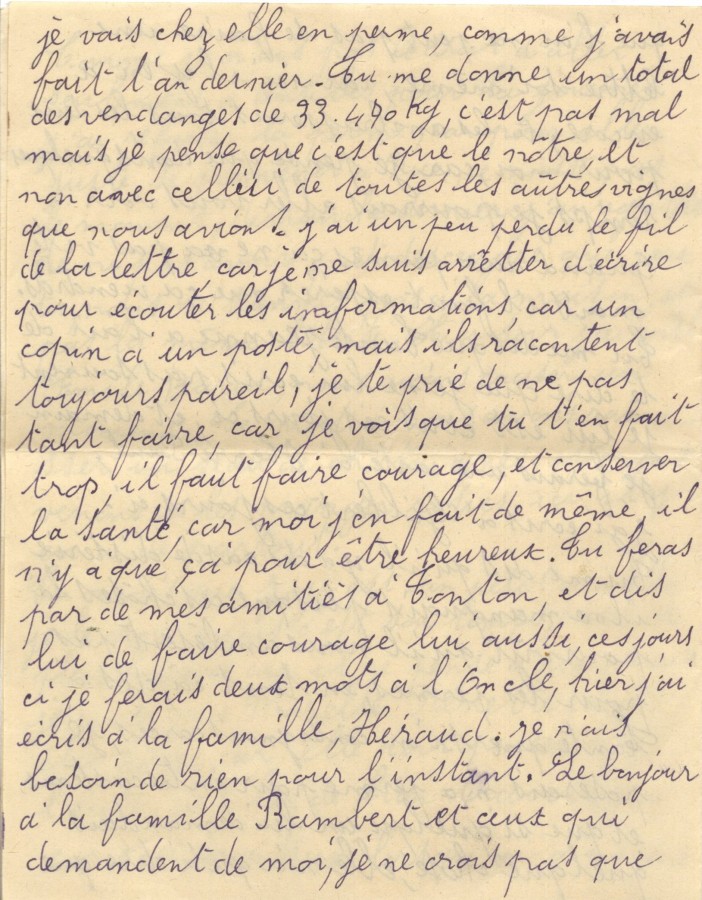 je vais chez elle en perme, comme j'avais
fait l'an dernier. Tu me donne un total
des vendanges de 33.470 Kg, c'est pas mal
mais je pense que c'est que le nôtre, et
non avec de toutes les aûtres vignes
que nous avions. j'ai un peu perdu le fil
de la lettre, car je me suis arrêtter d'écrire
pour écouter les informations, car un
copin a un poste, mais ils racontent
toujours pareil, je te prie de ne pas
tant faire, car je vois que tu t'en fait
trop, il faut faire courage, et conserver
la santé, car moi j'en fait de même, il
n'y a que ça pour être heureux. Tu feras
par de mes amitiès à Tonton, et dis
lui de faire courage lui aussi, ces jours
ci je ferais deux mots à l'Oncle, hier j'ai
écris à la famille, Héraud. je n'ais
besoin de rien pour l'instant. Le bonjour
à la famille Rambert et ceux qui
demandent de moi, je ne crois pas que